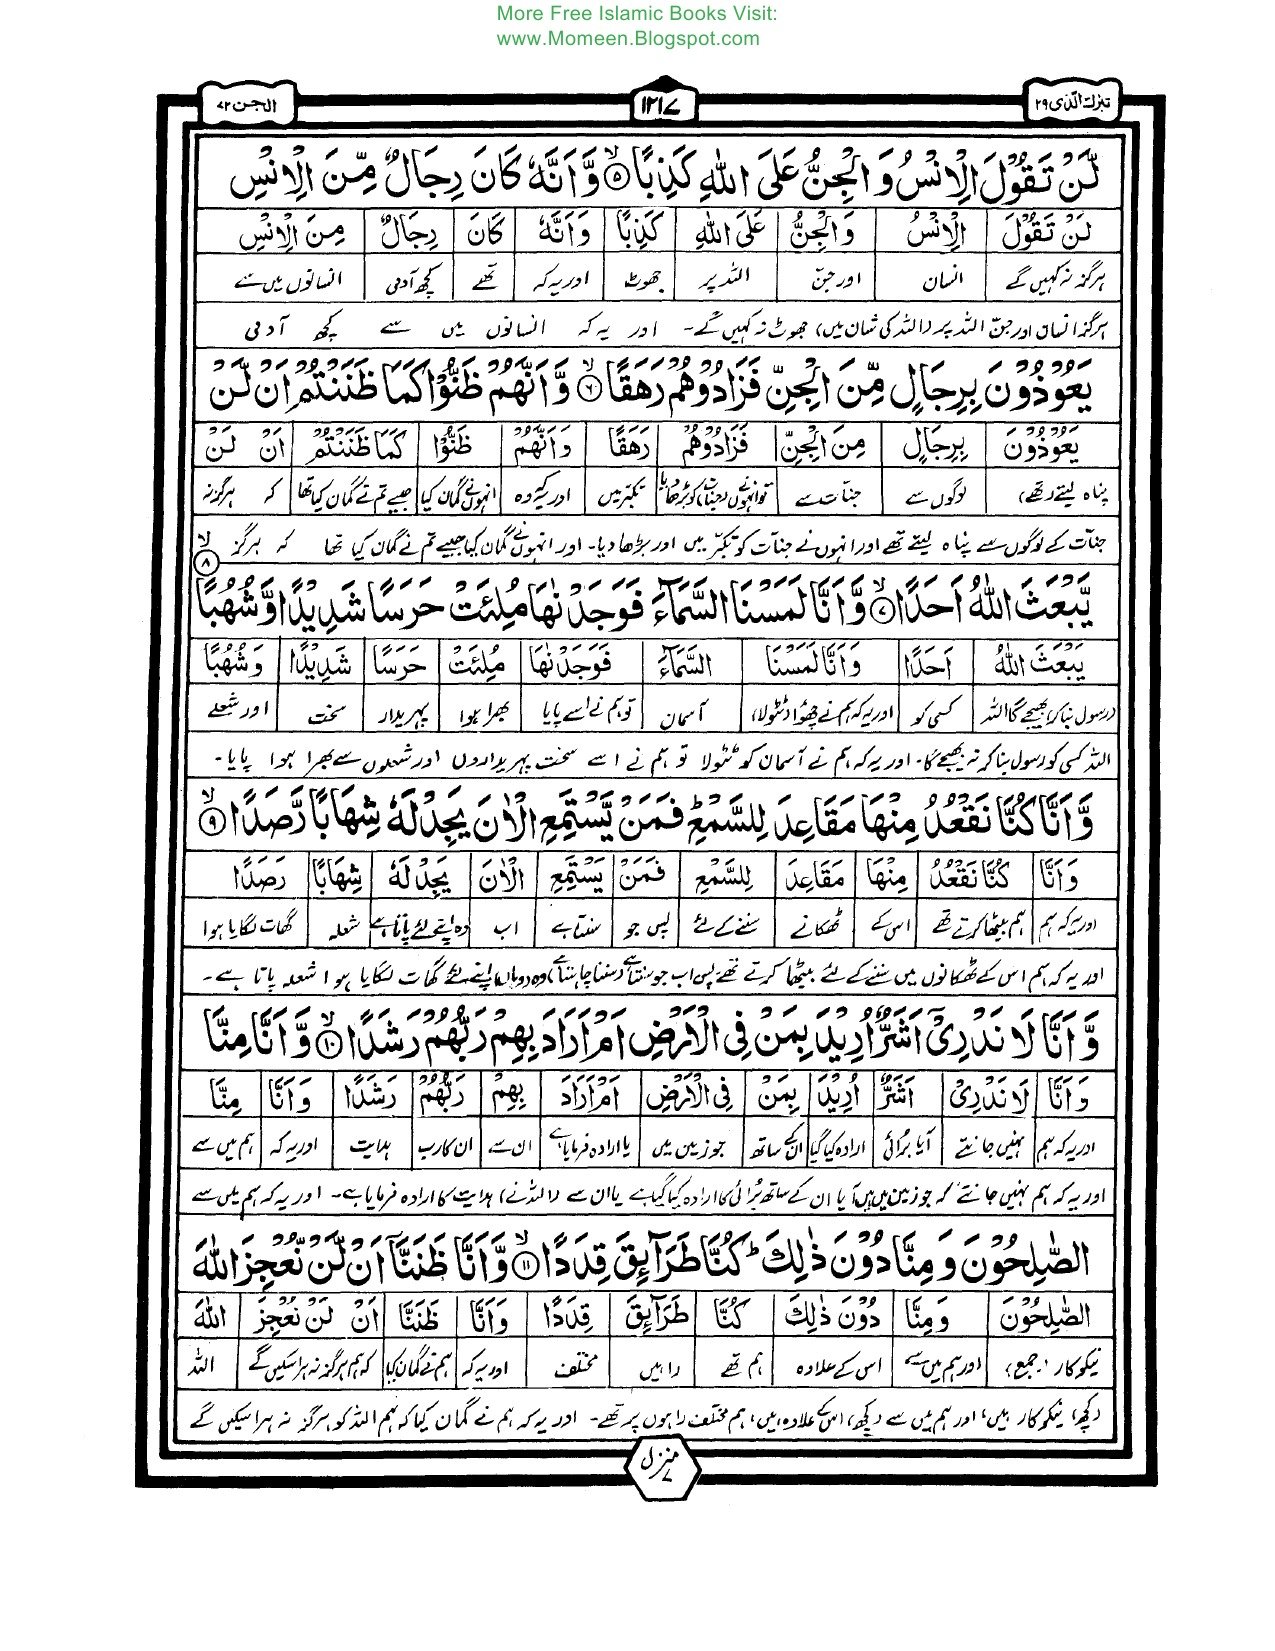 More Free Islamic Books Visit:
www.Momeen.Blogspot.com
تبٰرك الّذی ۲۹
۱۲۱۷
الجن ۷۲
لَّنْ تَقُوْلَ الْاِنْسُ وَ الْجِنُّ عَلَى اللّٰهِ كَذِبًا ۙ۵ وَّ اَنَّهٗ كَانَ رِجَالٌ مِّنَ الْاِنْسِ
لَنْ تَقُوْلَ الْاِنْسُ وَ الْجِنُّ عَلَى اللّٰهِ كَذِبًا وَ اَنَّهٗ كَانَ رِجَالٌ مِنَ الْاِنْسِ
ہرگز نہ کہیں گے انسان اور جنّ اللہ پر جھوٹ اور یہ کہ تھے کچھ آدمی انسانوں میں سے
ہرگز انسان اور جنّ اللہ پر (اللہ کی شان میں) جھوٹ نہ کہیں گے۔ اور یہ کہ انسانوں میں سے کچھ آدمی
يَعُوْذُوْنَ بِرِجَالٍ مِّنَ الْجِنِّ فَزَادُوْهُمْ رَهَقًا ۙ۶ وَّ اَنَّهُمْ ظَنُّوْا كَمَا ظَنَنْتُمْ اَنْ لَّنْ
يَعُوْذُوْنَ بِرِجَالٍ مِنَ الْجِنِّ فَزَادُوْهُمْ رَهَقًا وَ اَنَّهُمْ ظَنُّوْا كَمَا ظَنَنْتُمْ اَنْ لَنْ
پناہ لیتے (تھے) لوگوں سے جنّات سے تو انہوں نے (جنات) کو بڑھا دیا تکبّر میں اور یہ کہ وہ انہوں نے گمان کیا جیسے تم نے گمان کیا تھا کہ ہرگز نہ
جنّات کے لوگوں سے پناہ لیتے تھے اور انہوں نے جنات کو تکبّر میں اور بڑھا دیا۔ اور انہوں نے گمان کیا جیسے تم نے گمان کیا تھا کہ ہرگز
يَّبْعَثَ اللّٰهُ اَحَدًا ۙ۷ وَّ اَنَّا لَمَسْنَا السَّمَآءَ فَوَجَدْنٰهَا مُلِئَتْ حَرَسًا شَدِيْدًا وَّ شُهُبًا ۙ۸
يَبْعَثَ اللّٰهُ اَحَدًا وَ اَنَّا لَمَسْنَا السَّمَآءَ فَوَجَدْنٰهَا مُلِئَتْ حَرَسًا شَدِيْدًا وَ شُهُبًا
(رسول بنا کر) بھیجے گا اللہ کسی کو اور یہ کہ ہم نے چھوا (ٹٹولا) آسمان تو ہم نے اسے پایا بھرا ہوا پہریدار سخت اور شعلے
اللہ کسی کو رسول بنا کر نہ بھیجے گا۔ اور یہ کہ ہم نے آسمان کو ٹٹولا تو ہم نے اسے سخت پہریداروں اور شعلوں سے بھرا ہوا پایا۔
وَّ اَنَّا كُنَّا نَقْعُدُ مِنْهَا مَقَاعِدَ لِلسَّمْعِ ؕ فَمَنْ يَّسْتَمِعِ الْاٰنَ يَجِدْ لَهٗ شِهَابًا رَّصَدًا ۙ۹
وَ اَنَّا كُنَّا نَقْعُدُ مِنْهَا مَقَاعِدَ لِلسَّمْعِ فَمَنْ يَسْتَمِعِ الْاٰنَ يَجِدْ لَهٗ شِهَابًا رَصَدًا
اور یہ کہ ہم ہم بیٹھا کرتے تھے اس کے ٹھکانے سننے کے لئے پس جو سنتا ہے اب وہ اپنے لئے پاتا ہے شعلہ گھات لگایا ہوا
اور یہ کہ ہم اس کے ٹھکانوں میں سننے کے لئے بیٹھا کرتے تھے پس اب جو سنتا ہے (سننا چاہتا ہے) وہ (وہاں) اپنے لئے گھات لگایا ہوا شعلہ پاتا ہے۔
وَّ اَنَّا لَا نَدْرِيْۤ اَشَرٌّ اُرِيْدَ بِمَنْ فِي الْاَرْضِ اَمْ اَرَادَ بِهِمْ رَبُّهُمْ رَشَدًا ۙ۱۰ وَّ اَنَّا مِنَّا
وَ اَنَّا لَا نَدْرِيْ اَشَرٌّ اُرِيْدَ بِمَنْ فِي الْاَرْضِ اَمْ اَرَادَ بِهِمْ رَبُّهُمْ رَشَدًا وَ اَنَّا مِنَّا
اور یہ کہ ہم نہیں جانتے آیا برائی ارادہ کیا گیا ان کے ساتھ جو زمین میں یا ارادہ فرمایا ہے ان سے ان کا رب ہدایت اور یہ کہ ہم میں سے
اور یہ کہ ہم نہیں جانتے کہ جو زمین میں ہیں آیا ان کے ساتھ بُرائی کا ارادہ کیا گیا ہے یا ان سے (اللہ نے) ہدایت کا ارادہ فرمایا ہے۔ اور یہ کہ ہم میں سے
الصّٰلِحُوْنَ وَ مِنَّا دُوْنَ ذٰلِكَ ؕ كُنَّا طَرَآئِقَ قِدَدًا ۙ۱۱ وَّ اَنَّا ظَنَنَّاۤ اَنْ لَّنْ نُّعْجِزَ اللّٰهَ
الصّٰلِحُوْنَ وَ مِنَّا دُوْنَ ذٰلِكَ كُنَّا طَرَآئِقَ قِدَدًا وَ اَنَّا ظَنَنَّا اَنْ لَنْ نُعْجِزَ اللّٰهَ
نیکوکار (جمع) اور ہم میں سے اس کے علاوہ ہم تھے راہیں مختلف اور یہ کہ ہم نے گمان کیا کہ ہم ہرگز نہ ہرا سکیں گے اللہ
(کچھ) نیکوکار ہیں، اور ہم میں سے (کچھ) اس کے علاوہ ہیں، ہم مختلف راہوں پر تھے۔ اور یہ کہ ہم نے گمان کیا کہ ہم اللہ کو ہرگز نہ ہرا سکیں گے
منزل ۷